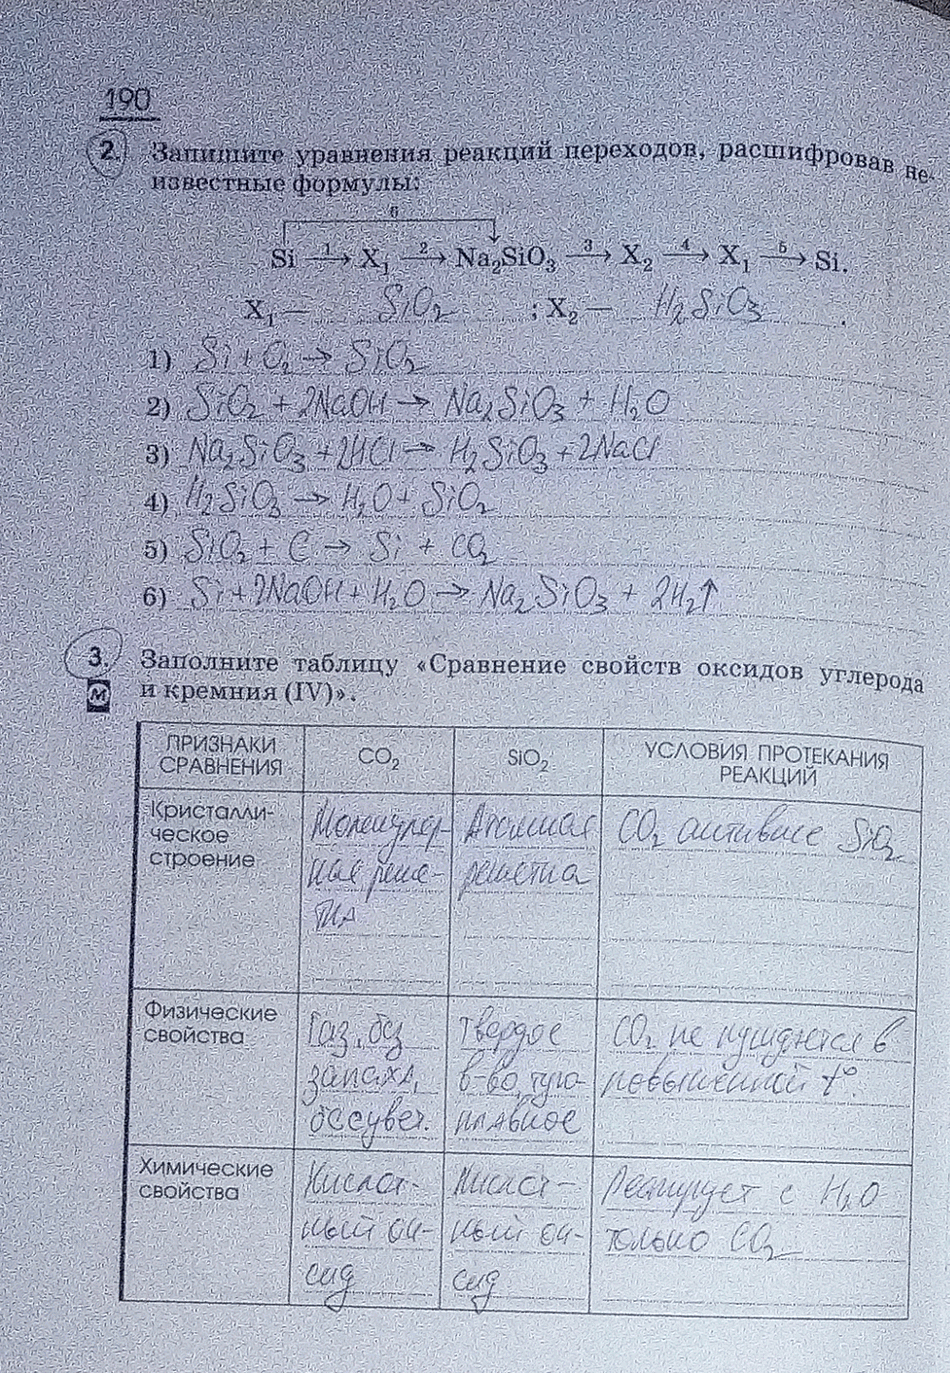 190
2. Запишите уравнения реакций переходов, расшифровав не-
известные формулы:
6
Si —1→ X₁ —2→ Na₂SiO₃ —3→ X₂ —4→ X₁ —5→ Si.
X₁ — SiO₂ ; X₂ — H₂SiO₃ .
1) Si + O₂ → SiO₂
2) SiO₂ + 2NaOH → Na₂SiO₃ + H₂O
3) Na₂SiO₃ + 2HCl → H₂SiO₃ + 2NaCl
4) H₂SiO₃ → H₂O + SiO₂
5) SiO₂ + C → Si + CO₂
6) Si + 2NaOH + H₂O → Na₂SiO₃ + 2H₂↑
3. Заполните таблицу «Сравнение свойств оксидов углерода
М и кремния (IV)».
ПРИЗНАКИ
СРАВНЕНИЯ
CO₂
SiO₂
УСЛОВИЯ ПРОТЕКАНИЯ
РЕАКЦИЙ
Кристалли-
ческое
строение
Молекуляр-
ная реше-
тка
Атомная
решетка
CO₂ активнее SiO₂
Физические
свойства
Газ, без
запаха,
бесцвет.
Твердое
в-во, туго-
плавкое
CO₂ не нуждается в
повышенной t°.
Химические
свойства
Кислот-
ный ок-
сид
Кислот-
ный ок-
сид
Реагирует с H₂O
только CO₂